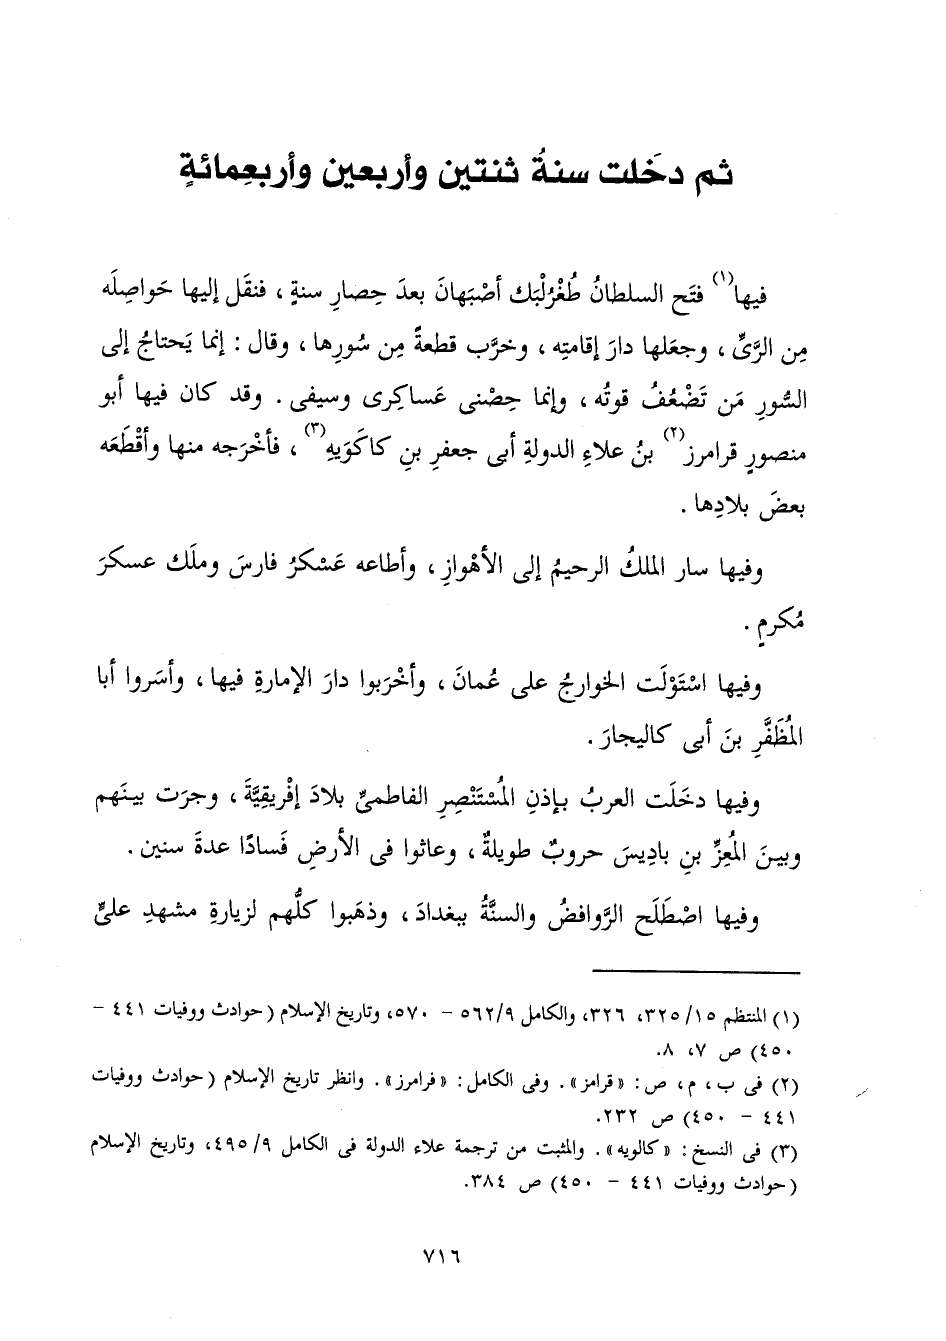 ثم دخَلت سنةُ ثنتين وأربعين وأربعِمائةٍ
فيها(١) فتَح السلطانُ طُغْرُلْبَك أصْبَهانَ بعدَ حِصارِ سنةٍ ، فنقَل إليها حَواصِلَه
مِن الرَّىِّ ، وجعَلها دارَ إقامتِه ، وخرَّب قطعةً مِن سُورِها ، وقال : إنما يَحتاجُ إلى
السُّورِ مَن تَضْعُفُ قوتُه ، وإنما حِصْنى عَساكِرى وسيفى . وقد كان فيها أبو
منصورٍ قرامرز(٢) بنُ علاءِ الدولةِ أبى جعفرِ بنِ كاكَوَيهِ(٣) ، فأخْرَجه منها وأقْطَعَه
بعضَ بلادِها .
وفيها سار الملكُ الرحيمُ إلى الأهْوازِ ، وأطاعه عَسْكرُ فارسَ وملَك عسكرَ
مُكرمٍ .
وفيها اسْتَوْلَت الخوارجُ على عُمانَ ، وأخْرَبوا دارَ الإمارةِ فيها ، وأسَروا أبا
المُظَفَّرِ بنَ أبى كاليجارَ .
وفيها دخَلَت العربُ بإذنِ المُسْتَنْصِرِ الفاطمىِّ بلادَ إفْريقِيَّةَ ، وجرَت بينَهم
وبينَ المُعِزِّ بنِ بادِيسَ حروبٌ طويلةٌ ، وعاثوا فى الأرضِ فَسادًا عدةَ سنين .
وفيها اصْطَلَح الرَّوافضُ والسنَّةُ ببغدادَ ، وذهَبوا كلُّهم لزيارةِ مشهدِ علىٍّ
(١) المنتظم ١٥/ ٣٢٥، ٣٢٦، والكامل ٩/ ٥٦٢ - ٥٧٠، وتاريخ الإسلام (حوادث ووفيات ٤٤١ -
٤٥٠) ص ٧، ٨.
(٢) فى ب ، م ، ص : « قرامز » . وفى الكامل : « فرامرز » . وانظر تاريخ الإسلام (حوادث ووفيات
٤٤١ - ٤٥٠) ص ٢٣٢.
(٣) فى النسخ : « كالويه » . والمثبت من ترجمة علاء الدولة فى الكامل ٩/ ٤٩٥، وتاريخ الإسلام
(حوادث ووفيات ٤٤١ - ٤٥٠) ص ٣٨٤.
٧١٦